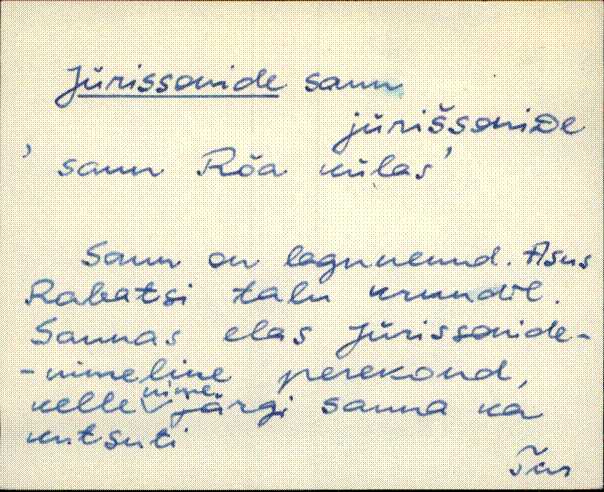 Jürissonide saun
jüriššoniDe
' saun Rõa külas'
Saun on lagunenud. Asus
Rabatsi talu krundil.
Saunas elas Jürissonide-
-nimeline perekond,
kelle nime järgi sauna ka
kutsuti